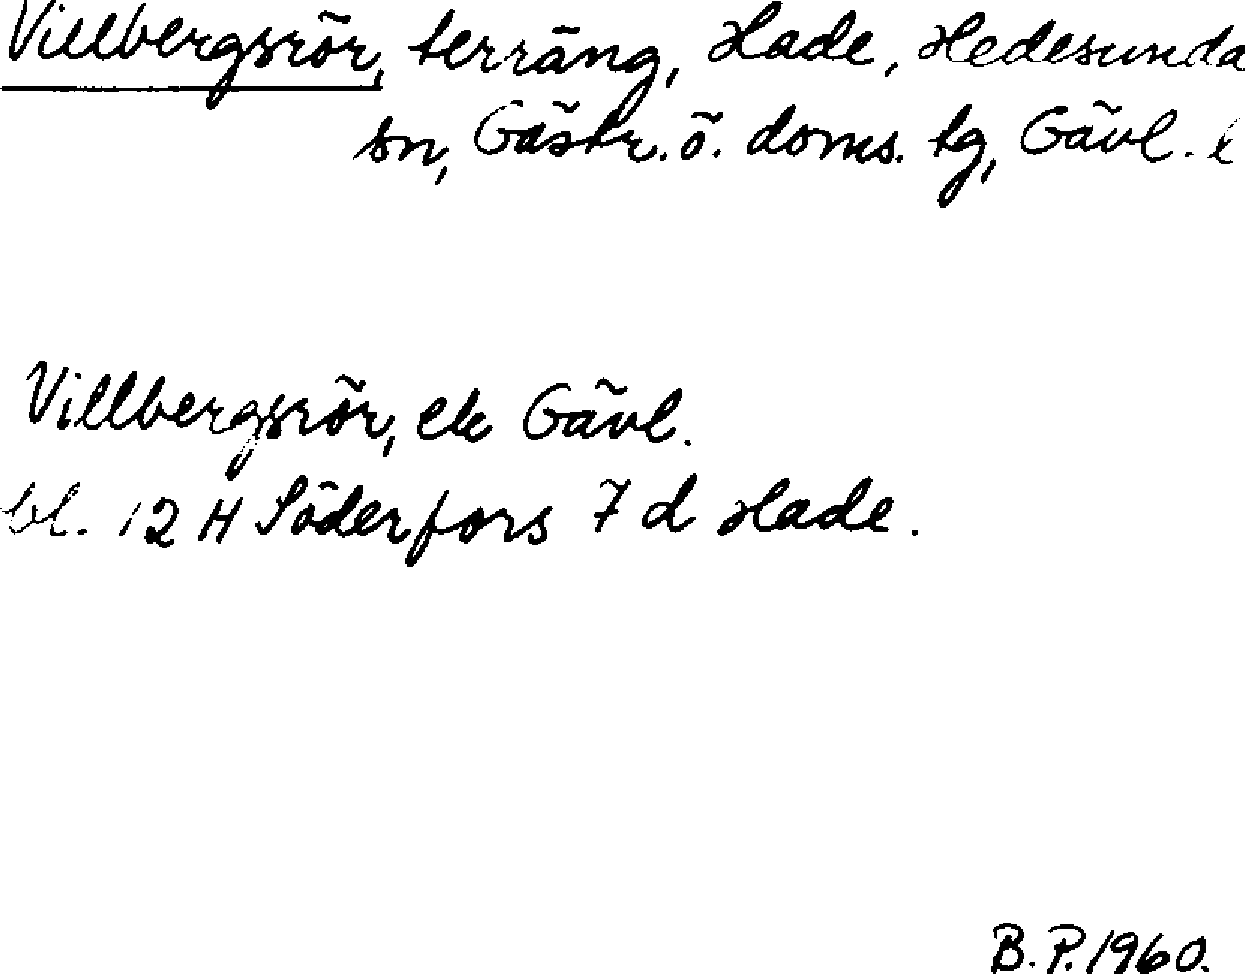 Villbergsrör, terräng, Hade, Hedesunda
sn, Gästr. ö. doms. tg, Gävl. l
Villbergsrör, ek Gävl.
bl. 12 H Söderfors 7 d Hade.
B.P. 1960.